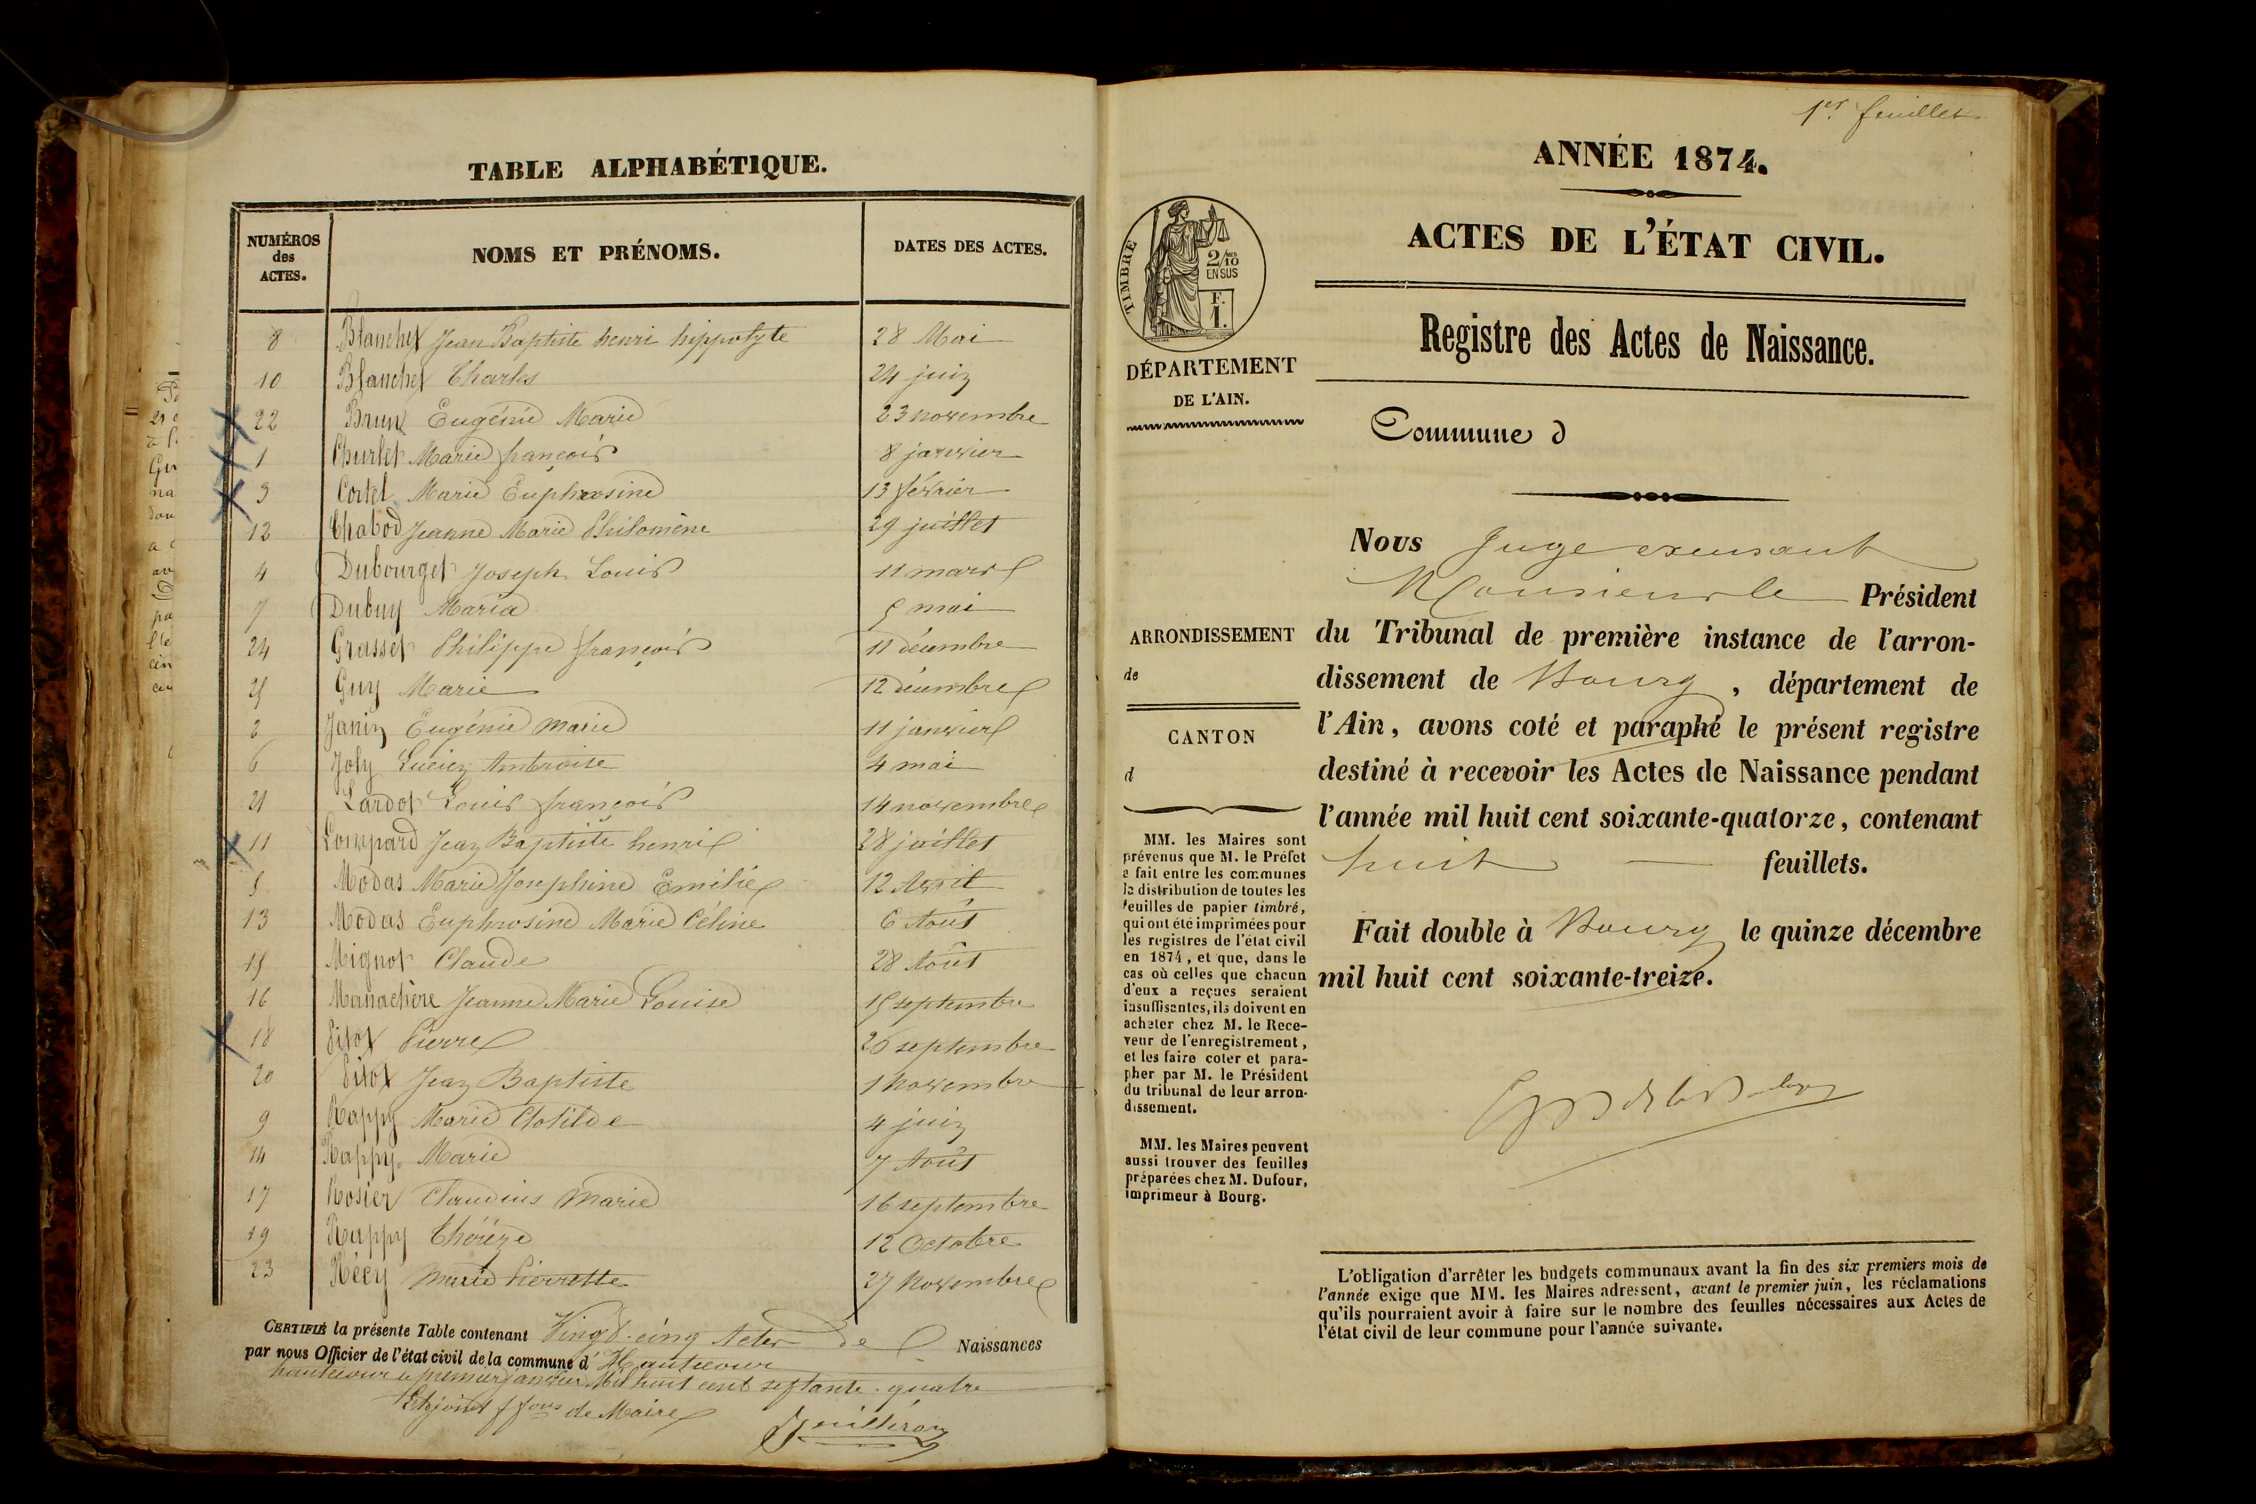 TABLE ALPHABÉTIQUE.
NUMÉROS des ACTES. NOMS ET PRÉNOMS. DATES DES ACTES.
8 Blanchet Jean Baptiste henri hippolyte 28 Mai
10 Blanchet Charles 24 juin
22 Brun Eugénie Marie 23 novembre
1 Churlet Marie françois 8 janvier
3 Cortel Marie Euphrosine 13 février
12 Chabod Jeanne Marie Philomène 29 juillet
4 Dubourget Joseph Louis 11 mars
7 Dubuy Maria 5 mai
24 Grasset Philippe françois 11 décembre
25 Guy Marie 12 décembre
2 Janin Eugénie Marie 11 janvier
6 Joly Lucien Ambroise 4 mai
21 Lardot Louis françois 14 novembre
11 Jean Baptiste henri 28 juillet
5 Modas Marie Josephine Emélie 12 Avril
13 Modas Euphrosine Marie Céline 6 Août
15 Mignot Claude 28 Août
16 Jeanne Marie Louise 15 septembre
18 Pitot Pierre 26 septembre
20 Pitot Jean Baptiste 1 novembre
9 Rappy Marie Clotilde 4 juin
14 Rappy Marie 7 Août
17 Rosier Claudius Marie 16 septembre
19 Rappy Thérèze 12 Octobre
23 Récy Marie Pierrette 27 Novembre
CERTIFIÉ la présente Table contenant Vingt-cinq Actes de Naissances
par nous Officier de l'état civil de la commune d' Hautecour
hautecour le premier janvier Mil huit cent septante-quatre
de Maire
1er feuillet
ANNÉE 1874.
ACTES DE L'ÉTAT CIVIL.
TIMBRE
2/10 EN SUS
F. 1.
Registre des Actes de Naissance.
DÉPARTEMENT
DE L'AIN.
Commune d
Nous Juge excusant
Monsieur le Président
ARRONDISSEMENT
de
CANTON
d
du Tribunal de première instance de l'arron-
dissement de Bourg, département de
l'Ain, avons coté et paraphé le présent registre
destiné à recevoir les Actes de Naissance pendant
l'année mil huit cent soixante-quatorze, contenant
huit feuillets.
Fait double à Bourg le quinze décembre
mil huit cent soixante-treize.
MM. les Maires sont
prévenus que M. le Préfet
a fait entre les communes
la distribution de toutes les
feuilles de papier timbré,
qui ont été imprimées pour
les registres de l'état civil
en 1874, et que, dans le
cas où celles que chacun
d'eux a reçues seraient
insuffisantes, ils doivent en
acheter chez M. le Rece-
veur de l'enregistrement,
et les faire coter et para-
pher par M. le Président
du tribunal de leur arron-
dissement.
MM. les Maires peuvent
aussi trouver des feuilles
préparées chez M. Dufour,
imprimeur à Bourg.
L'obligation d'arrêter les budgets communaux avant la fin des six premiers mois de
l'année exige que MM. les Maires adressent, avant le premier juin, les réclamations
qu'ils pourraient avoir à faire sur le nombre des feuilles nécessaires aux Actes de
l'état civil de leur commune pour l'année suivante.